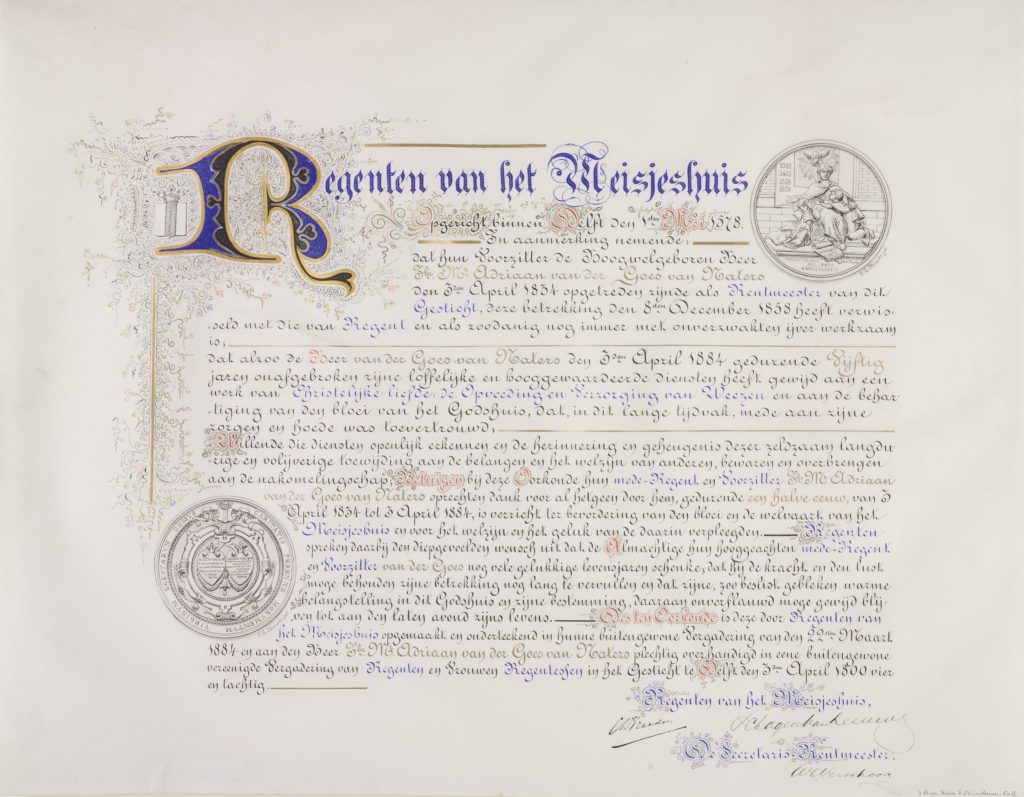 Regenten van het Meisjeshuis
Opgericht binnen Delft den 1sten Mei 1578.
In aanmerking nemende:
dat hun Voorzitter de Hoogwelgeboren Heer
Jhr. Mr. Adriaan van der Goes van Naters
den 3den April 1834 opgetreden zijnde als Rentmeester van dit
Gesticht, deze betrekking den 8sten December 1858 heeft verwis-
seld met die van Regent en als zoodanig nog immer met onverzwakten ijver werkzaam
is;
dat alzoo de Heer van der Goes van Naters den 3den April 1884 gedurende Vijftig
jaren onafgebroken zijne loffelijke en hooggewaardeerde diensten heeft gewijd aan een
werk van Christelijke liefde: de Opvoeding en Verzorging van Weezen en aan de behar-
tiging van den bloei van het Godshuis, dat, in dit lange tijdvak, mede aan zijne
zorgen en hoede was toevertrouwd;
Willende die diensten openlijk erkennen en de herinnering en geheugenis dezer zeldzaam langdu-
rige en volijverige toewijding aan de belangen en het welzijn van anderen, bewaren en overbrengen
aan de nakomelingschap, Betuigen bij deze Oorkonde hun mede-Regent en Voorzitter Jhr. Mr. Adriaan
van der Goes van Naters oprechten dank voor al hetgeen door hem, gedurende een halve eeuw, van 3
April 1834 tot 3 April 1884, is verricht ter bevordering van den bloei en de welvaart van het
Meisjeshuis en voor het welzijn en het geluk van de daarin verpleegden. Regenten
spreken daarbij den diepgevoelden wensch uit dat de Almachtige hun hooggeachten mede-Regent
en Voorzitter van der Goes nog vele gelukkige levensjaren schenke; dat hij de kracht en den lust
moge behouden zijne betrekking nog lang te vervullen en dat zijne, zoo beslist gebleken warme
belangstelling in dit Godshuis en zijne bestemming, daaraan onverflauwd moge gewijd blij-
ven tot aan den laten avond zijns levens. Des ten Oorkonde is deze door Regenten van
het Meisjeshuis opgemaakt en onderteekend in hunne buitengewone Vergadering van den 22sten Maart
1884 en aan den Heer Jhr. Mr. Adriaan van der Goes van Naters plechtig overhandigd in eene buitengewone
vereenigde Vergadering van Regenten en Vrouwen Regentessen in het Gesticht te Delft den 3den April 1800 vier
en tachtig.
Regenten van het Meisjeshuis,
De Secretaris-Rentmeester,